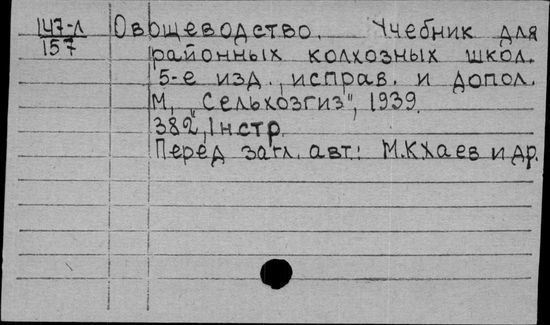 147-л Овощеводство. Учебник для
157 районных колхозных школ.
5-е изд., исправ. и допол.
М, "Сельхозгиз", 1939.
382, 1нстр.
Перед загл. авт: М.К